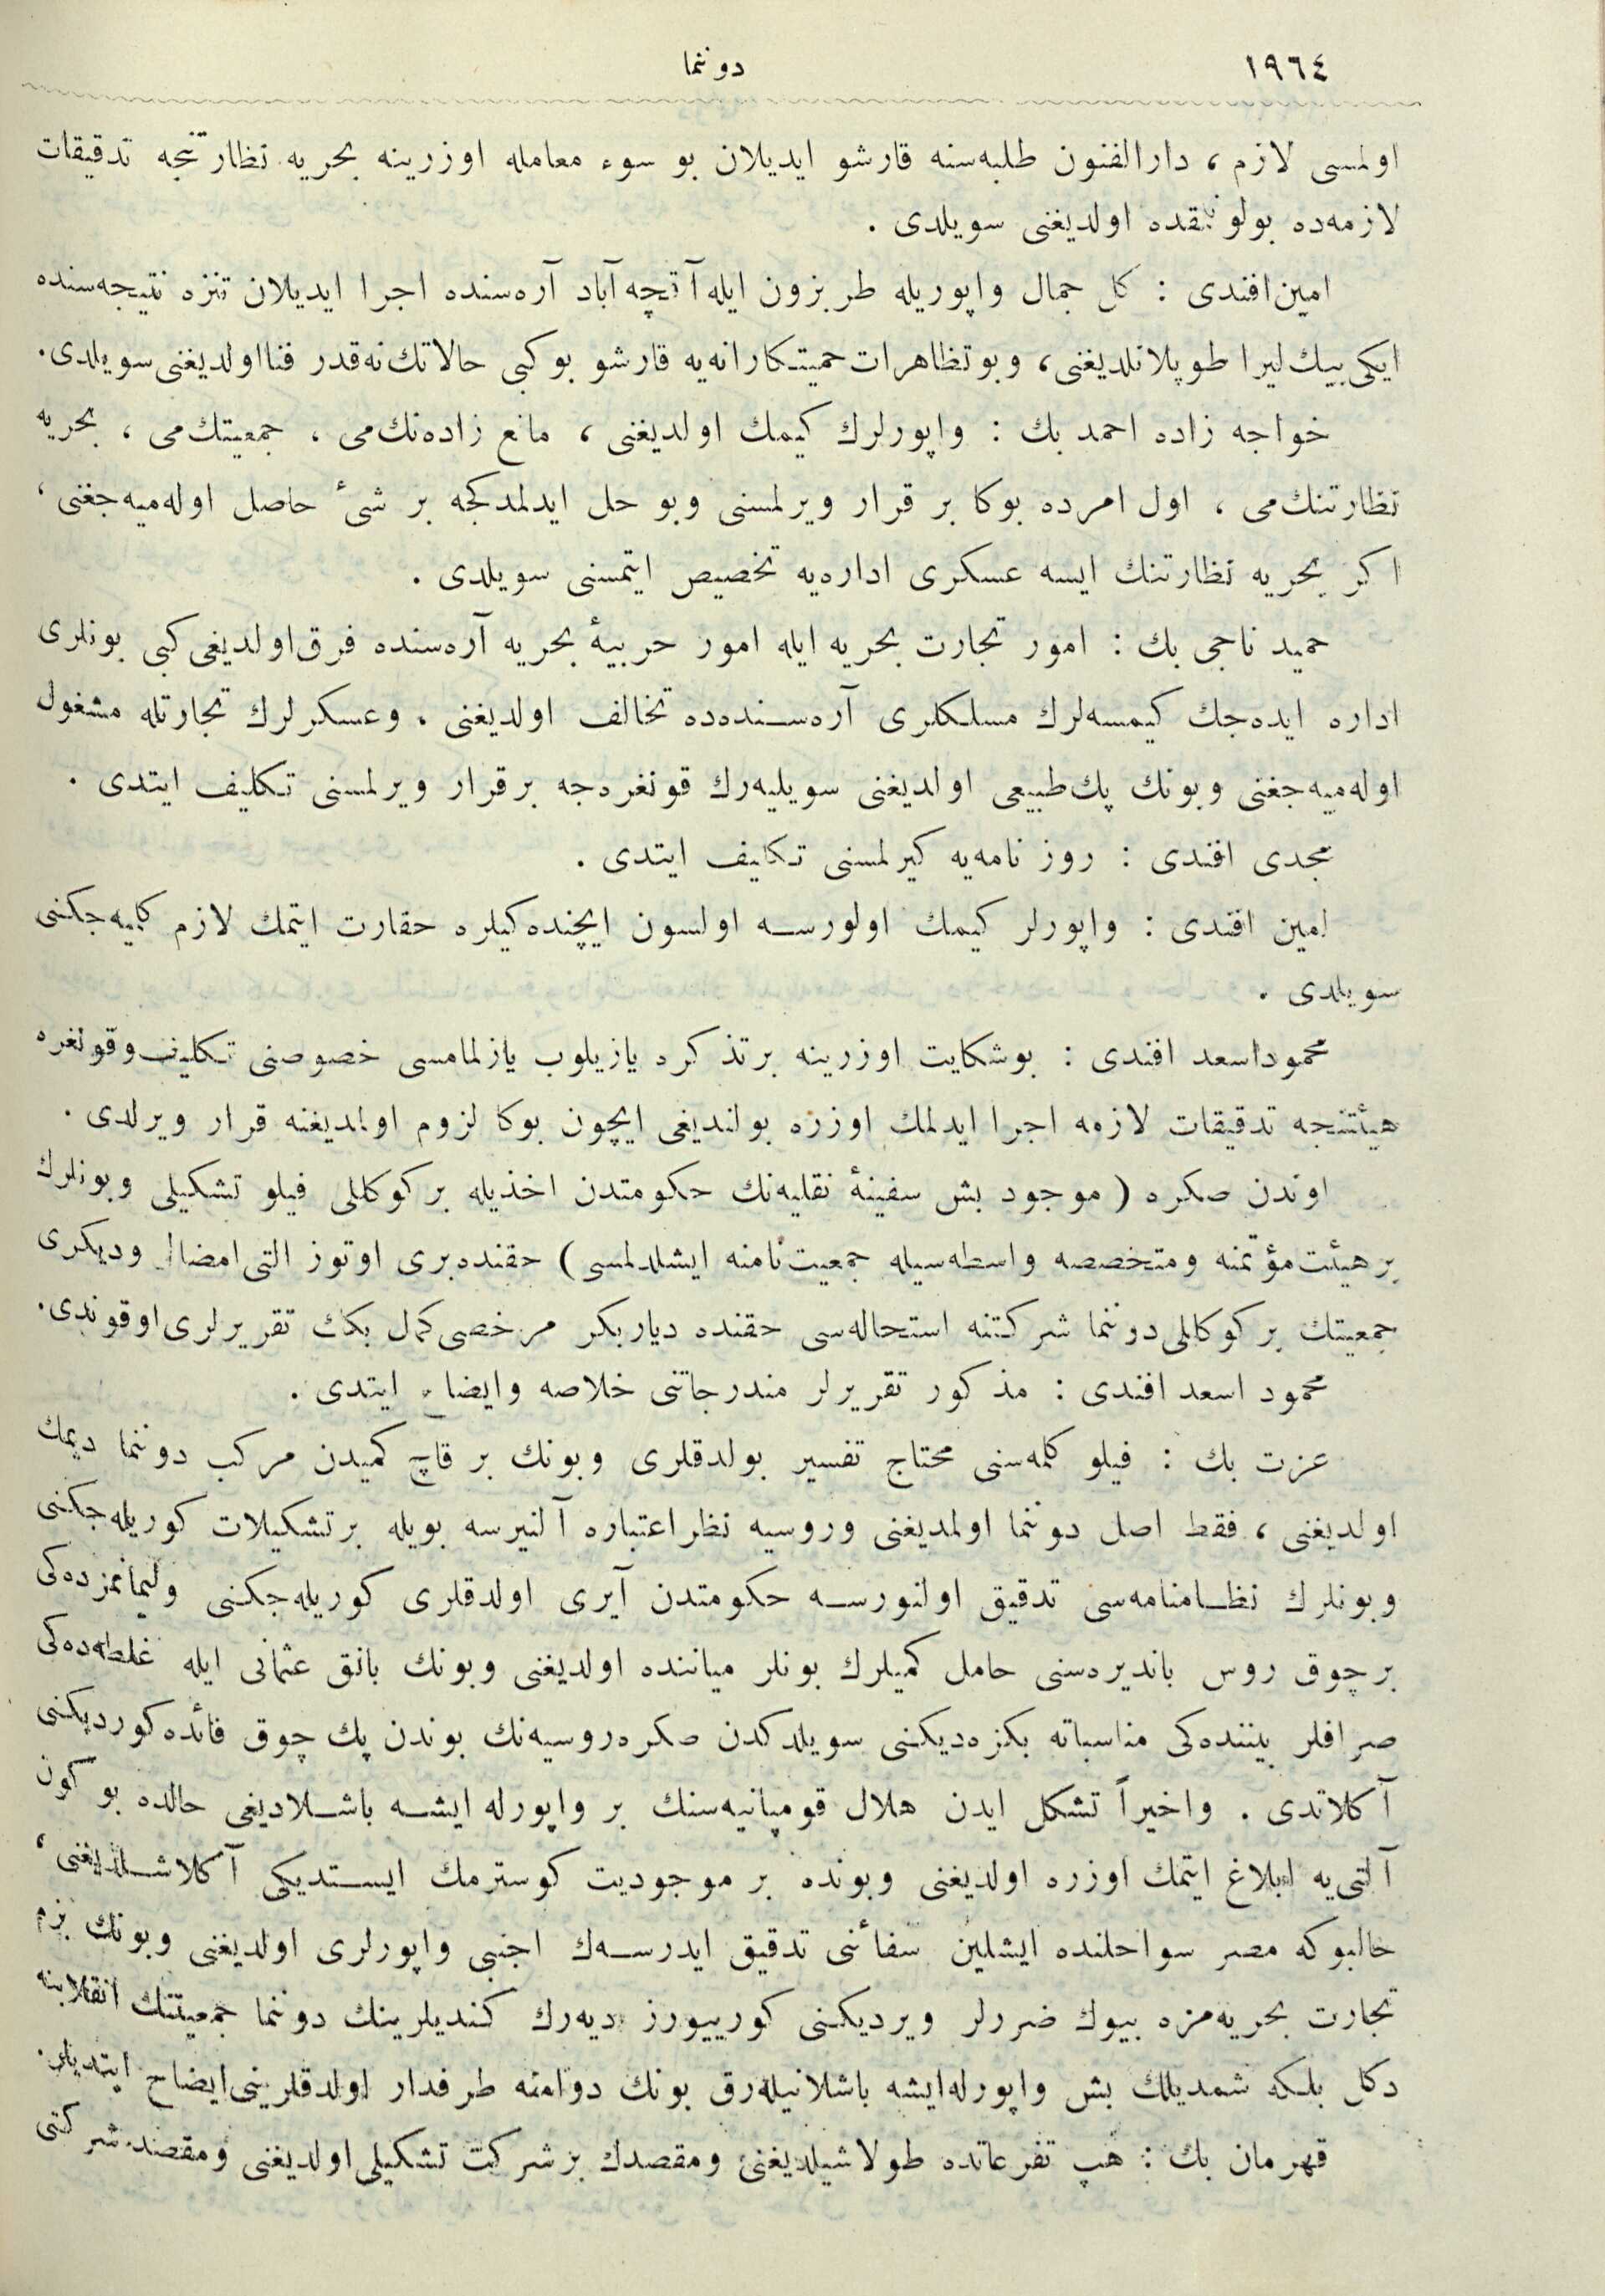 ١٩٦٤
دوننما
اولمسی لازم ، دارالفنون طلبه‌سنه قارشو ایدیلان بو سوء معامله اوزرینه بحریه نظارتنجه تدقیقات
لازمه‌ده بولونمقده اولدیغنی سویلدی .
امین افندی : کل جمال واپوریله طربزون ایله آقچه آباد آره‌سنده اجرا ایدیلان تنزه نتیجه‌سنده
ایکی بیك لیرا طوپلاندیغنی ، وبو تظاهرات حمیتکارانه‌یه قارشو بوکبی حالاتك نه‌قدر فنا اولدیغنی سویلدی .
خواجه زاده احمد بك : واپورلرك کیمك اولدیغنی ، مانع زاده‌نك‌می ، جمعیتك‌می ، بحریه
نظارتنك‌می ، اول امرده بوکا بر قرار ویرلمسنی وبو حل ایدلمدکجه بر شیٔ حاصل اوله‌میه‌جغنی ،
اکر بحریه نظارتنك ایسه عسکری اداره‌یه تخصیص ایتمسنی سویلدی .
حمید ناجی بك : امور تجارت بحریه ایله امور حربیهٔ بحریه آره‌سنده فرق اولدیغی کبی بونلری
اداره ایده‌جك کیمسه‌لرك مسلکلری آره‌سنده‌ده تخالف اولدیغنی . وعسکرلرك تجارتله مشغول
اوله‌میه‌جغنی وبونك پك طبیعی اولدیغنی سویلیه‌رك قونغره‌جه برقرار ویرلمسنی تکلیف ایتدی .
مجدی افندی : روز نامه‌یه کیرلمسنی تکلیف ایتدی .
امین افندی : واپورلر کیمك اولورسه اولسون ایچنده‌کیلره حقارت ایتمك لازم کلیه‌جکنی
سویلدی .
محمود اسعد افندی : بوشکایت اوزرینه برتذکره یازیلوب یازلمامسی خصوصنی تکلیف وقونغره
هیئتنجه تدقیقات لازمه اجرا ایدلمك اوزره بولندیغی ایچون بوکا لزوم اولمدیغنه قرار ویرلدی .
اوندن صکره ( موجود بش سفینهٔ نقلیه‌نك حکومتدن اخذیله بر کوکللی فیلو تشکیلی وبونلرك
بر هیئت مؤتمنه ومتخصصه واسطه‌سیله جمعیت نامنه ایشلدلمسی ) حقنده بری اوتوز التی امضالی ودیکری
جمعیتك بر کوکللی دوننما شرکتنه استحاله‌سی حقنده دیاربکر مرخصی کمل بکك تقریرلری اوقوندی .
محمود اسعد افندی : مذکور تقریرلر مندرجاتنی خلاصه وایضاح ایتدی .
عزت بك : فیلو کلمه‌سنی محتاج تفسیر بولدقلری وبونك بر قاچ کمیدن مرکب دوننما دیمك
اولدیغنی ، فقط اصل دوننما اولمدیغنی وروسیه نظر اعتباره آلنیرسه بویله برتشکیلات کوریله‌جکنی
وبونلرك نظامنامه‌سی تدقیق اولنورسه حکومتدن آیری اولدقلری کوریله‌جکنی ولیمانمزده‌کی
برچوق روس باندیره‌سنی حامل کمیلرك بونلر میاننده اولدیغنی وبونك بانق عثمانی ایله غلطه‌ده‌کی
صرافلر بیننده‌کی مناسباته بکزه‌دیکنی سویلدکدن صکره روسیه‌نك بوندن پك چوق فائده کوردیکنی
آکلاتدی . واخیراً تشکل ایدن هلال قومپانیه‌سنك بر واپورله ایشه باشلادیغی حالده بو کون
آلتی‌یه ابلاغ ایتمك اوزره اولدیغنی وبونده بر موجودیت کوسترمك ایستدیکی آکلاشلدیغنی ،
حالبوکه مصر سواحلنده ایشلین سفائنی تدقیق ایدرسه‌ك اجنبی واپورلری اولدیغنی وبونك بزم
تجارت بحریه‌مزه بیوك ضررلر ویردیکنی کورییورز دیه‌رك کندیلرینك دوننما جمعیتنك انقلابنه
دکل بلکه شمدیلك بش واپورله ایشه باشلانیله‌رق بونك دوامنه طرفدار اولدقلرینی ایضاح ایتدیلر .
قهرمان بك : هپ تفرعاتده طولاشیلدیغنی ومقصدك بر شرکت تشکیلی اولدیغنی ومقصد شرکتی